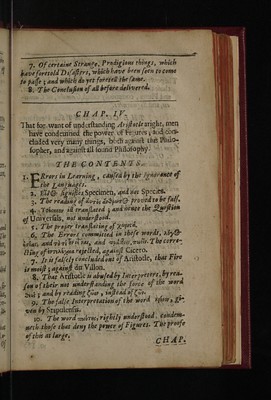 7. Of certaine Strange, Prodigious things, which
have foretold Disasters, which have been seen to come
to passe; and which do yet foretell the same.
8. The Conclusion of all before delivered.
CHAP. IV.
That for want of understanding Aristotle aright, men
have condemned the power of Figures, and con-
cluded very many things, both against this Philo-
sopher, and against all sound Philosophy.
THE CONTENTS.
1. Errors in Learning, caused by the ignorance of
the Languages.
2. Specimen, and not Species.
3. The reading of proved to be false,
4. ill translated; and hence the Question
of Universals, not understood.
5. The proper translating of
6. The Errors committed in these words,
and and The corre-
cting of rejected, against Cicero.
7. It is falsely concluded out of Aristotle, that Fire
is moist; against du Villon.
8. That Aristotle is abused by Interpreters, by rea-
son of their not understanding the force of the word
and by reading instead of
9. The false Interpretation of the word gi-
ven by
10. The word rightly understood, condem-
neth those that deny the power of Figures. The proofe
of this at large.
CHAP.